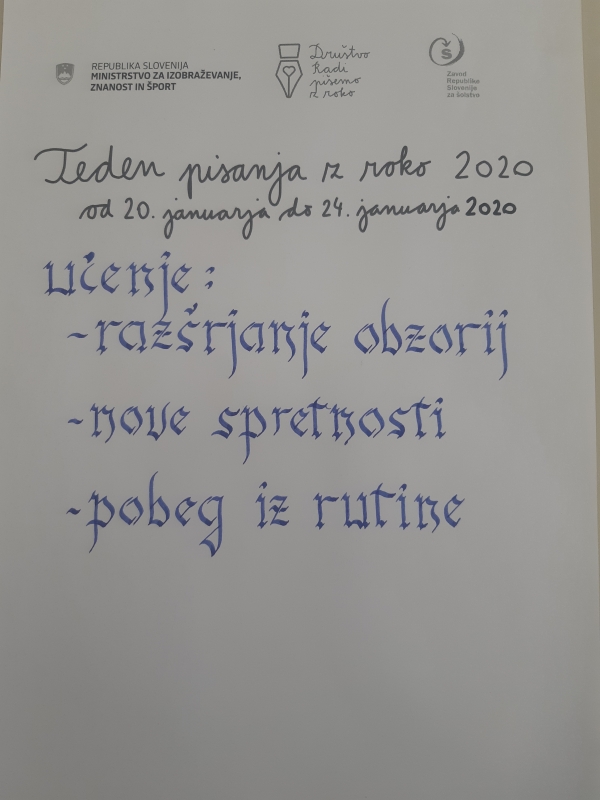 REPUBLIKA SLOVENIJA
MINISTRSTVO ZA IZOBRAŽEVANJE,
ZNANOST IN ŠPORT
Društvo
Radi
pišemo
z roko
Zavod
Republike
Slovenije
za šolstvo
Teden pisanja z roko 2020
od 20. januarja do 24. januarja 2020
učenje:
-razšrjanje obzorij
-nove spretnosti
-pobeg iz rutine